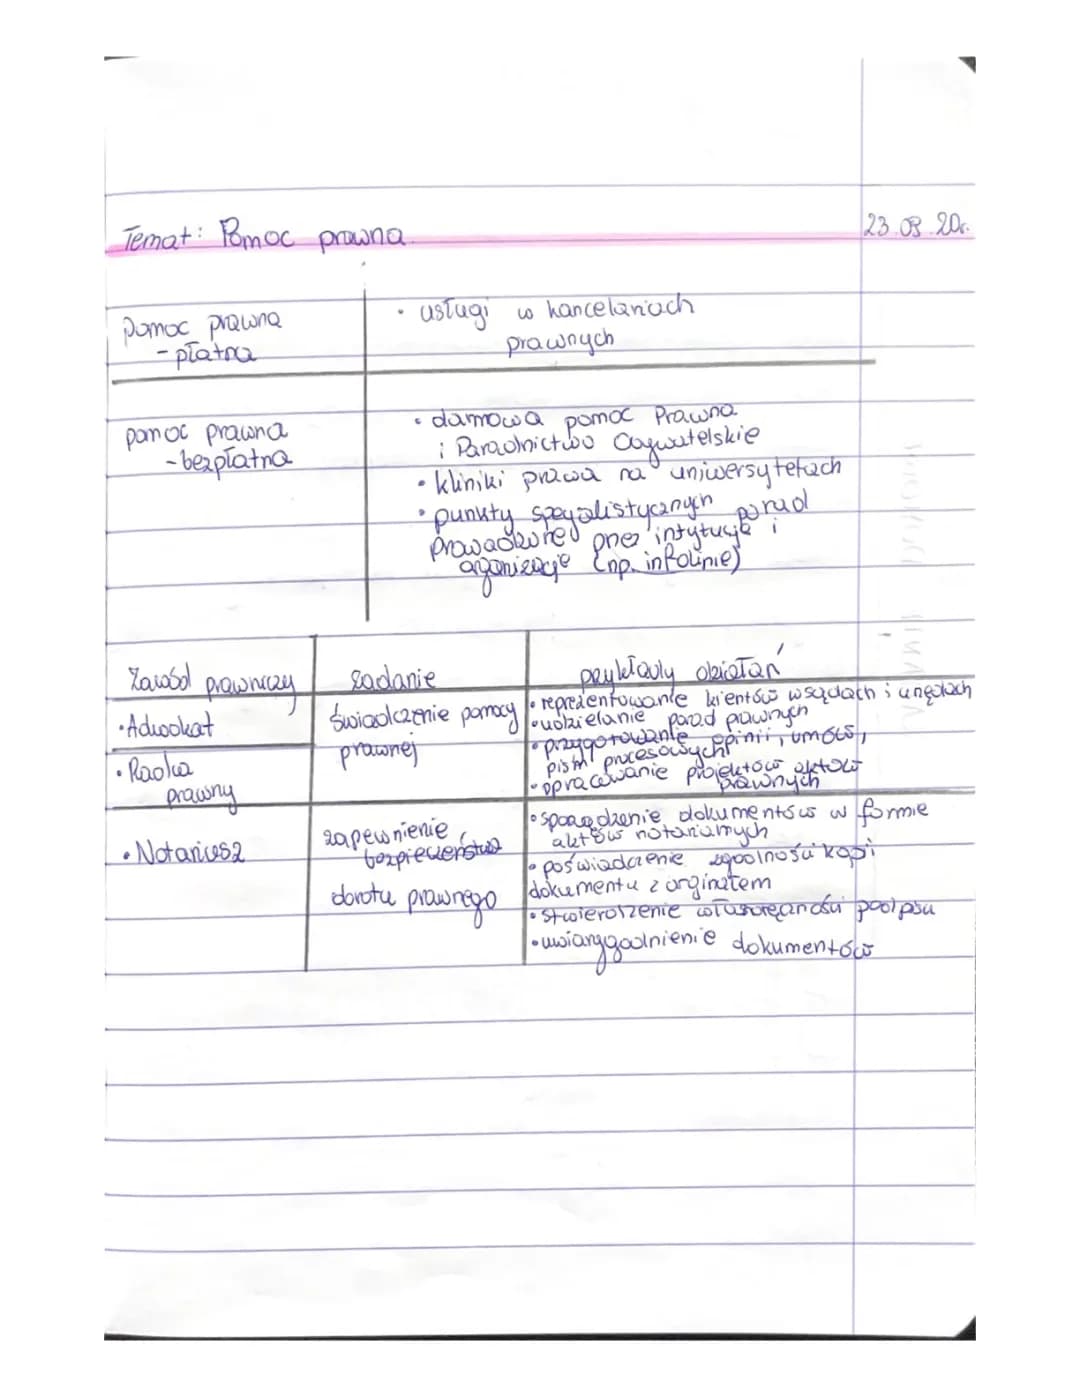 Temat: Pomoc prawna 23.03.20r.
Pomoc prawna
- płatna
• usługi w kancelariach
prawnych
pomoc prawna
- bezpłatna
• darmowa pomoc Prawna
i Poradnictwo Obywatelskie
• kliniki prawa na uniwersytetach
• punkty specjalistycznych porad
prowadzone przez intytucje i
organizacje (np. infolinie)
Zawód prawniczy
zadanie
przykłady działań
• Adwokat
• Radca
prawny
świadczenie pomocy
prawnej
• reprezentowanie klientów w sądach i urzędach
• udzielanie porad prawnych
• przygotowanie opinii, umów,
pism procesowych
• opracowanie projektów aktów
prawnych
• Notariusz
zapewnienie
bezpieczeństwa
obrotu prawnego
• sporządzenie dokumentów w formie
aktów notarialnych
• poświadczenie zgodności kopi
dokumentu z orginałem
• stwierdzenie własnoręczności podpisu
• uwiarygodnienie dokumentów